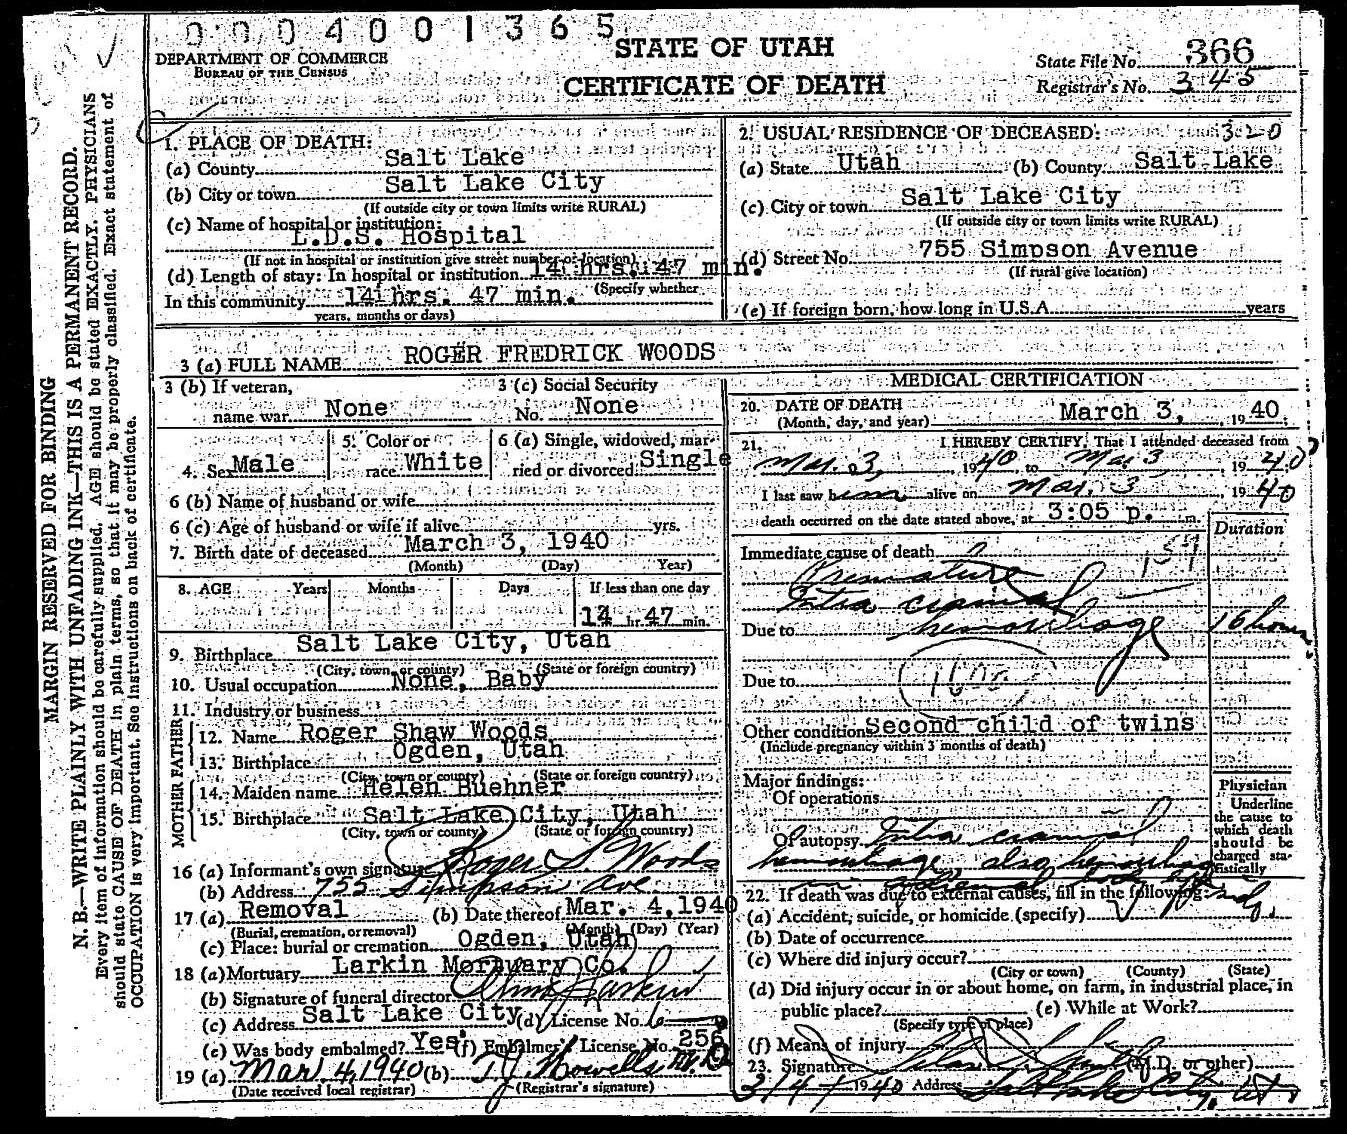 0004001365
STATE OF UTAH
CERTIFICATE OF DEATH
DEPARTMENT OF COMMERCE
BUREAU OF THE CENSUS
State File No. 366
Registrar's No. 345
MARGIN RESERVED FOR BINDING
N. B.—WRITE PLAINLY WITH UNFADING INK—THIS IS A PERMANENT RECORD.
Every item of information should be carefully supplied. AGE should be stated EXACTLY. PHYSICIANS
should state CAUSE OF DEATH in plain terms, so that it may be properly classified. Exact statement of
OCCUPATION is very important. See instructions on back of certificate.
1. PLACE OF DEATH:
(a) County Salt Lake
(b) City or town Salt Lake City
(If outside city or town limits write RURAL)
(c) Name of hospital or institution:
L.D.S. Hospital
(If not in hospital or institution give street number or location)
(d) Length of stay: In hospital or institution 14 hrs. 47 min.
(Specify whether
In this community 14 hrs. 47 min.
years, months or days)
2. USUAL RESIDENCE OF DECEASED: 320
(a) State Utah (b) County Salt Lake
(c) City or town Salt Lake City
(If outside city or town limits write RURAL)
(d) Street No. 755 Simpson Avenue
(If rural give location)
(e) If foreign born, how long in U.S.A. years
3 (a) FULL NAME ROGER FREDRICK WOODS
3 (b) If veteran,
name war None
3 (c) Social Security
No. None
4. Sex Male
5. Color or
race White
6 (a) Single, widowed, mar-
ried or divorced: Single
6 (b) Name of husband or wife
6 (c) Age of husband or wife if alive yrs.
7. Birth date of deceased March 3, 1940
(Month) (Day) Year)
8. AGE Years Months Days If less than one day
14 hr. 47 min.
9. Birthplace Salt Lake City, Utah
(City, town, or county) (State or foreign country)
10. Usual occupation None, Baby
11. Industry or business
FATHER
12. Name Roger Shaw Woods
13. Birthplace Ogden, Utah
(City, town or county) (State or foreign country)
MOTHER
14. Maiden name Helen Buehner
15. Birthplace Salt Lake City, Utah
(City, town or county) (State or foreign country)
16 (a) Informant's own signature Roger S. Woods
(b) Address 755 Simpson Ave
17 (a) Removal (b) Date thereof Mar. 4, 1940
(Burial, cremation, or removal) (Month) (Day) (Year)
(c) Place: burial or cremation Ogden, Utah
18 (a) Mortuary Larkin Mortuary Co.
(b) Signature of funeral director Larkin
(c) Address Salt Lake City (d) License No.
(e) Was body embalmed? Yes (f) Embalmer's License No. 256
19 (a) Mar 4, 1940 (b) T.J. Howells M.D.
(Date received local registrar) (Registrar's signature)
MEDICAL CERTIFICATION
20. DATE OF DEATH
(Month, day, and year) March 3, 1940.
21. I HEREBY CERTIFY, That I attended deceased from
Mar. 3, 1940 to Mar 3, 1940
I last saw him alive on Mar. 3, 1940
death occurred on the date stated above, at 3:05 p. m.
Duration
Immediate cause of death 159
Premature
Intra cranial
Due to hemorrhage 16 hours
Due to 160a
Other conditions Second child of twins
(Include pregnancy within 3 months of death)
Major findings:
Of operations
Of autopsy Intra cranial
hemorrhage also hemorrhage
Physician
Underline
the cause to
which death
should be
charged sta-
tistically
22. If death was due to external causes, fill in the following:
(a) Accident, suicide, or homicide (specify)
(b) Date of occurrence
(c) Where did injury occur?
(City or town) (County) (State)
(d) Did injury occur in or about home, on farm, in industrial place, in
public place? (e) While at Work?
(Specify type of place)
(f) Means of injury
23. Signature Smith (M.D. or other)
3/4/1940 Address Salt Lake City, Ut